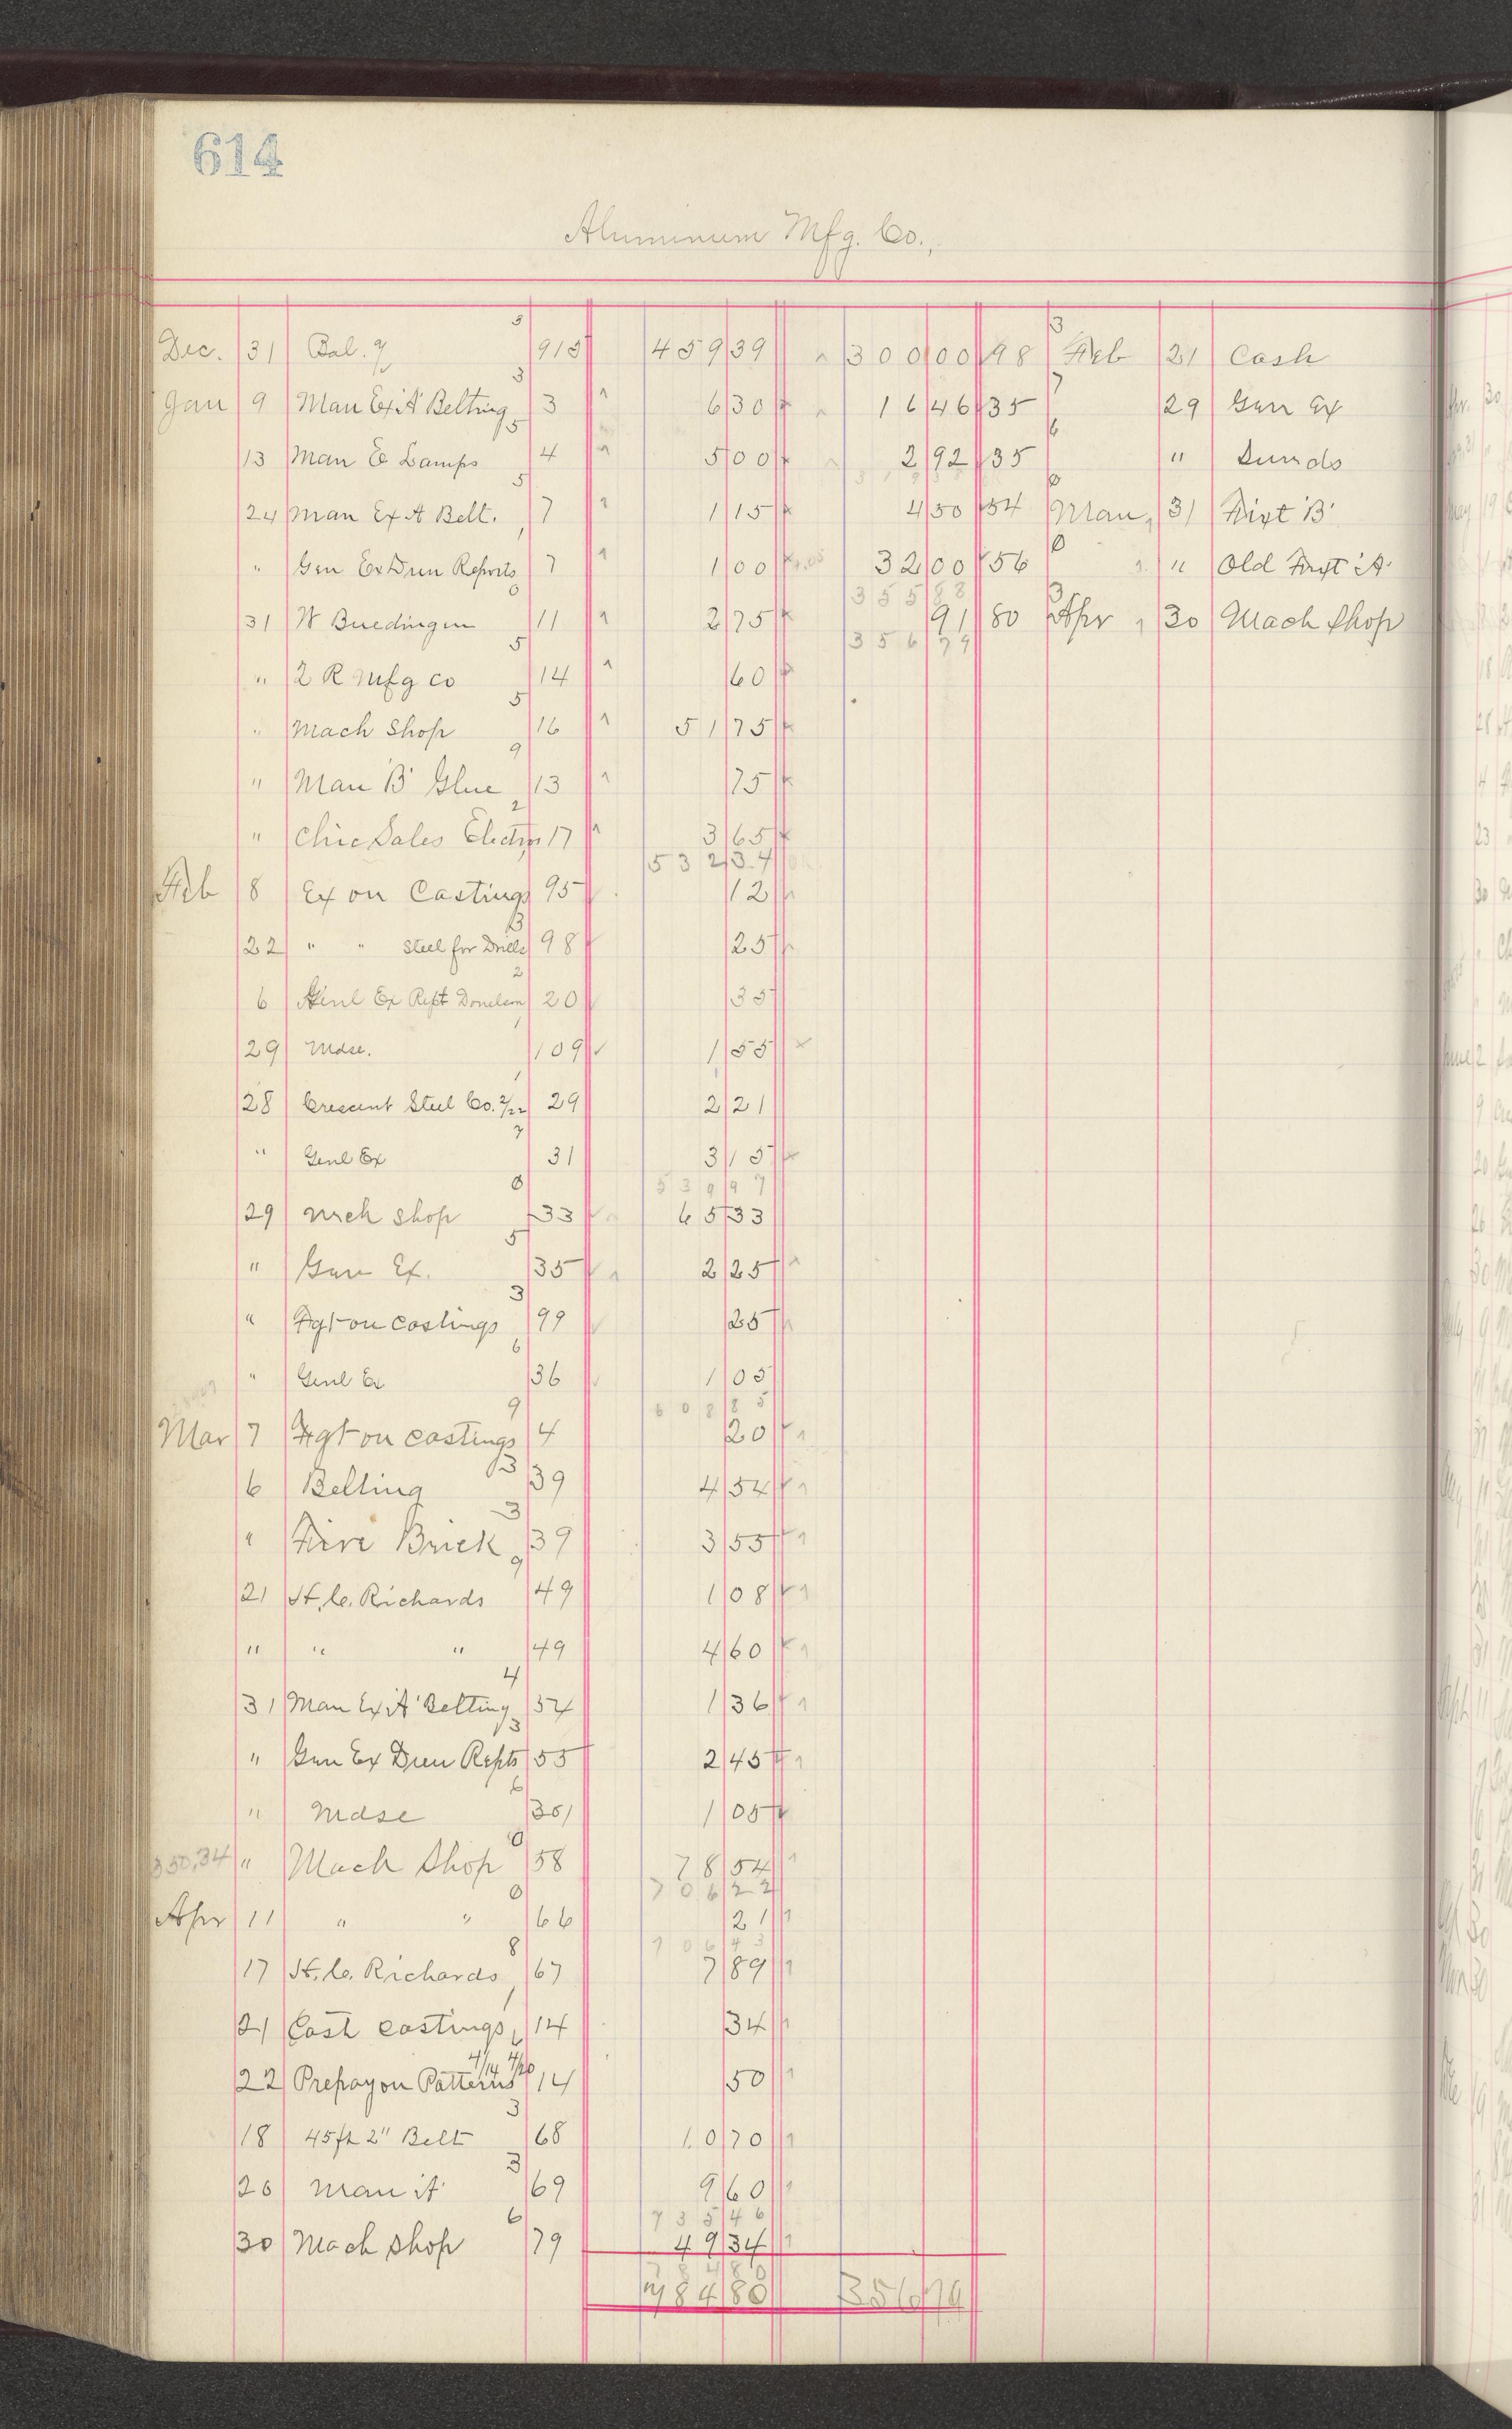 614
Aluminum Mfg. Co.,
Dec. 31 Bal. 915 459 39 300 00 98 Feb 21 Cash
Jan 9 Man Ex 'A' Belting 3 6 30 16 46 35 29 Gen Ex
13 Man Ex Lamps 4 5 00 2 92 35 " Sunds
24 Man Ex A Belt. 7 1 15 4 50 54 Mar 31 Frgt 'B'
" Gen Ex Dun Reports 7 1 00 32 00 56 " Old Frgt 'A'
355 88
31 W Buedingen 11 2 75 91 80 Apr 30 Mach Shop
356 79
" 2 R Mfg Co 14 60
" Mach Shop 16 51 75
" Man 'B' Glue 13 75
" Chic Sales 17 3 65
532 34
Feb 8 Ex on Castings 95 12
22 " " Steel for Drills 98 25
6 Genl Ex Rept 20 35
29 Mdse. 109 1 55
28 Crescent Steel Co. 2/22 29 2 21
" Genl Ex 31 3 15
539 97
29 Mch Shop 33 65 33
" Gen Ex. 35 2 25
" Fgt on Castings 99 25
" Genl Ex 36 1 05
608 85
Mar 7 Frgt on castings 4 20
6 Belting 39 4 54
" Fire Brick 39 3 55
21 H. C. Richards 49 1 08
" " " 49 4 60
31 Man Ex 'A' Belting 54 1 36
" Gen Ex Dun Repts 55 2 45
" Mdse 1 05
350,34 " Mach Shop 58 78 54
706 22
Apr 11 " " 66 21
706 43
17 H. C. Richards 67 7 89
21 Cash castings 14 34
4/14 4/20
22 Prepay on Patterns 14 50
18 45 ft 2" Belt 68 10 70
26 Man 'A' 69 9 60
735 46
30 Mach Shop 79 49 34
784 80
784 80 356 79